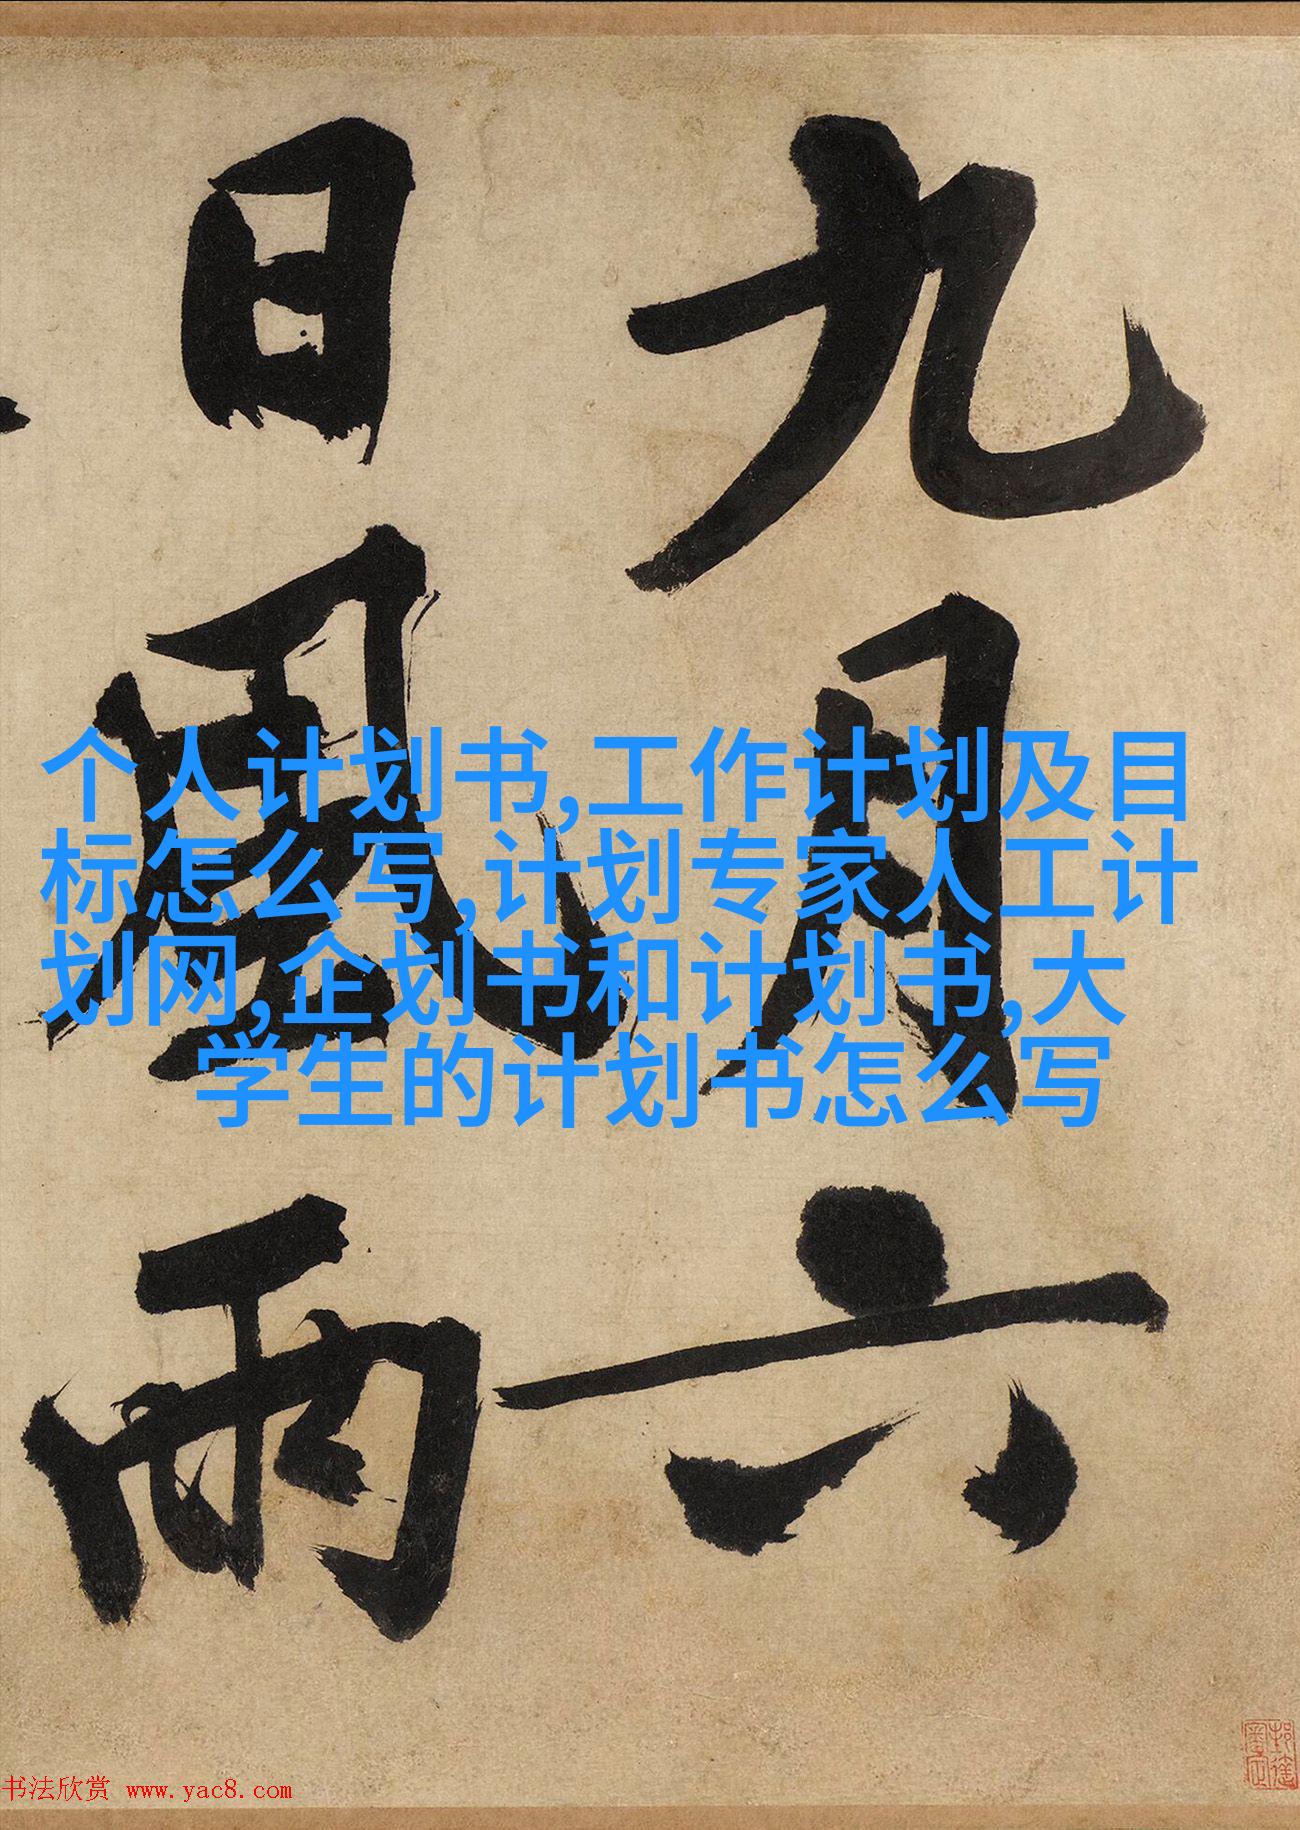 九月六
日風雨
个人计划书,工作计划及目
标怎么写,计划专家人工计
划网,企划书和计划书,大
学生的计划书怎么写
书法欣赏 www.yac8.com